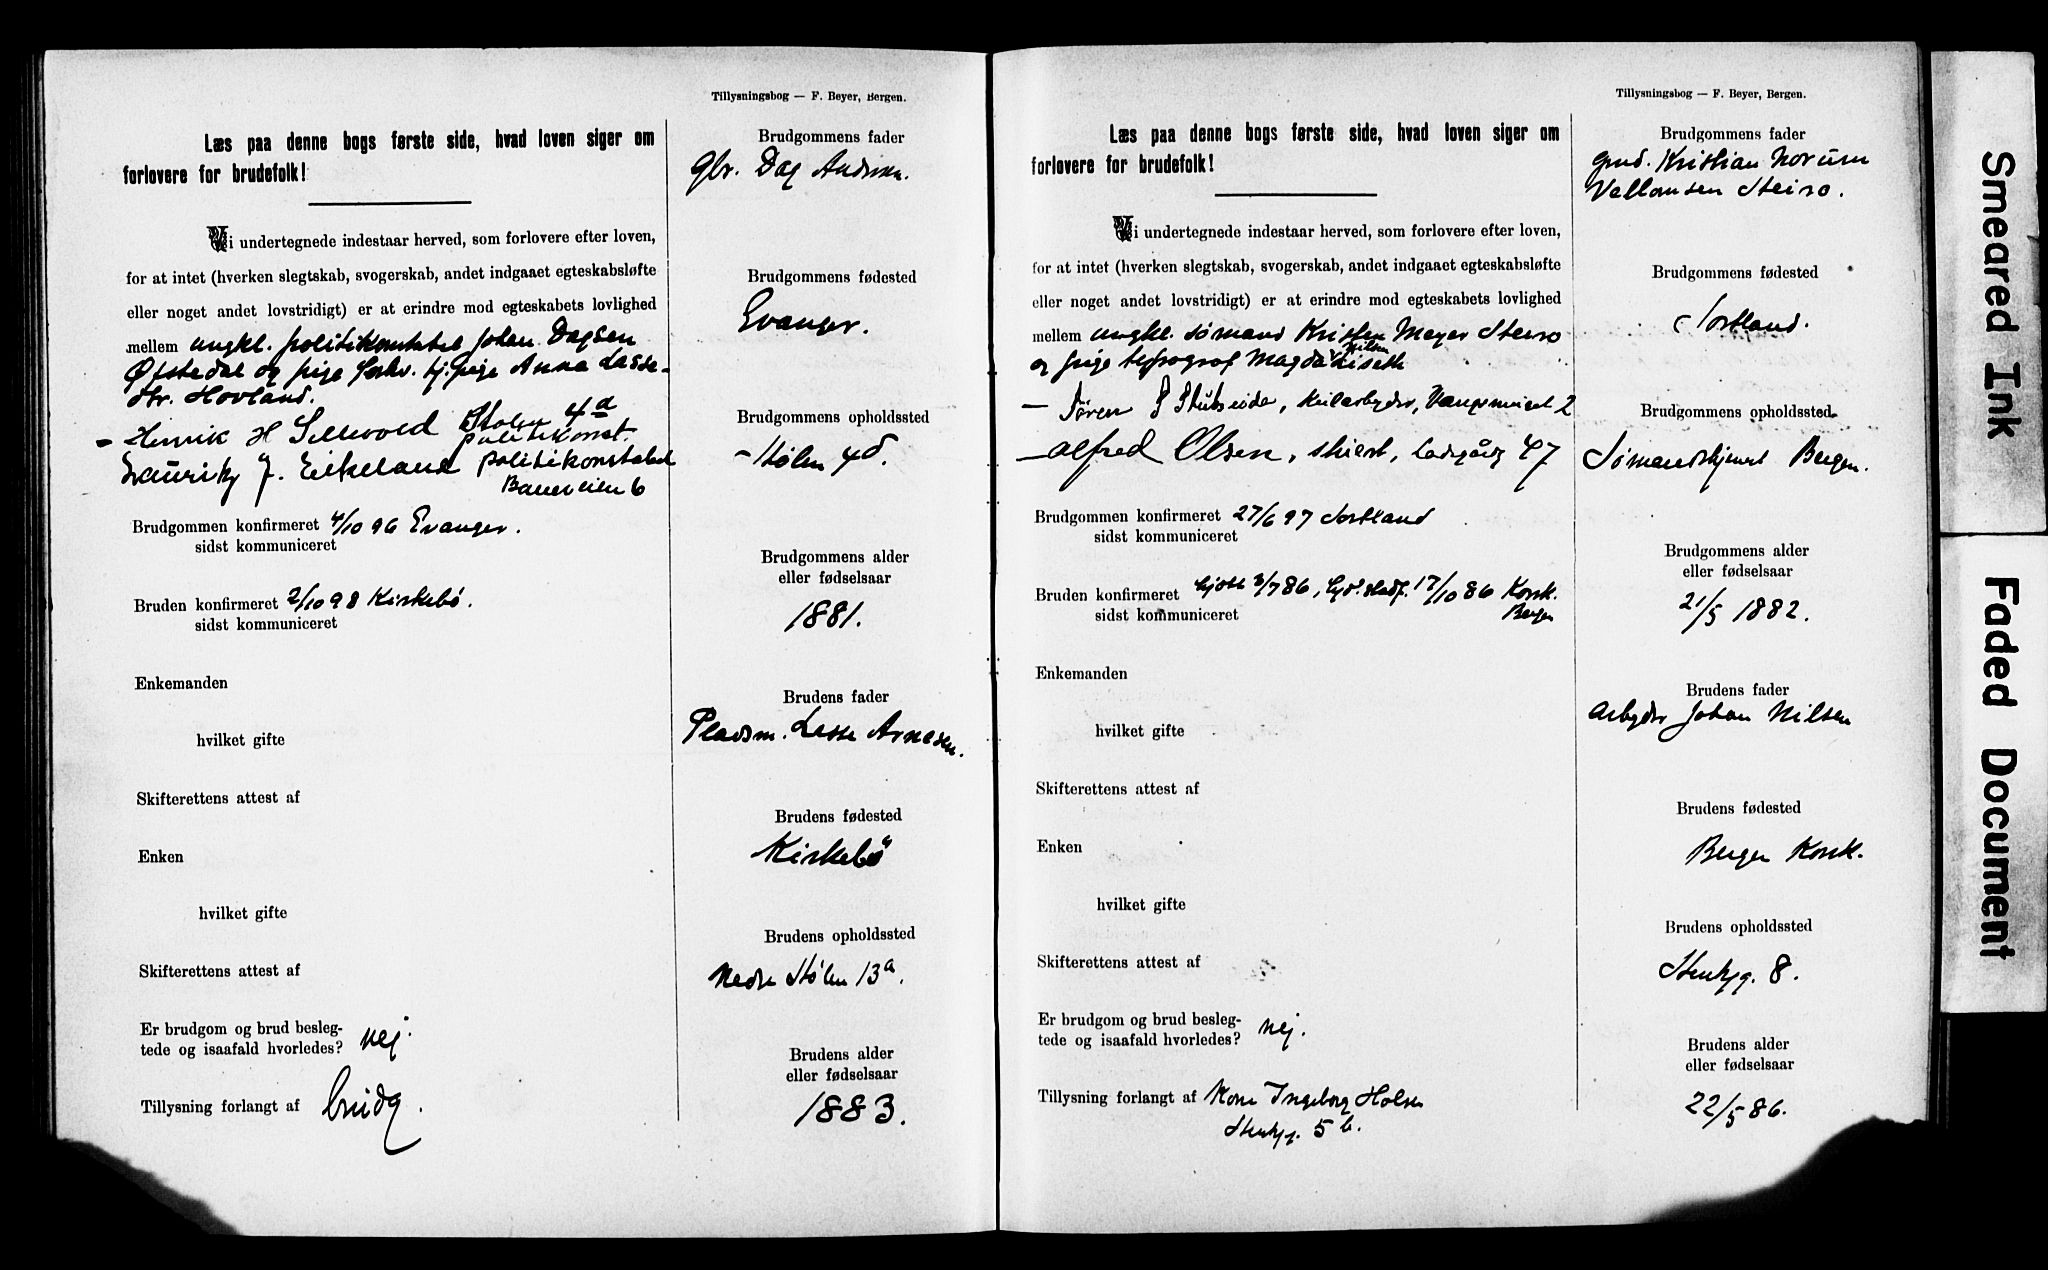 Tillysningsbog — F. Beyer, Bergen.
Læs paa denne bogs første side, hvad loven siger om
forlovere for brudefolk!
Vi undertegnede indestaar herved, som forlovere efter loven,
for at intet (hverken slegtskab, svogerskab, andet indgaaet egteskabsløfte
eller noget andet lovstridigt) er at erindre mod egteskabets lovlighed
mellem ungkl. politikonstabel Johan Dagsen
Øfstedal og pige tj.pige Anna Lasse-
dtr. Hovland.
- Henrik H Sellevold Stølen 4d
politikonst.
J. Eikeland politikonstabel
6
Brudgommen konfirmeret 4/10 96 Evanger.
sidst kommuniceret
Bruden konfirmeret 2/10 98 Kirkebø.
sidst kommuniceret
Enkemanden
hvilket gifte
Skifterettens attest af
Enken
hvilket gifte
Skifterettens attest af
Er brudgom og brud besleg-
tede og isaafald hvorledes? nej.
Tillysning forlangt af brudg.
Brudgommens fader
Gbr. Dag Andersen.
Brudgommens fødested
Evanger.
Brudgommens opholdssted
Stølen 4d.
Brudgommens alder
eller fødselsaar
1881.
Brudens fader
Pladsm. Lasse Arnesen.
Brudens fødested
Kirkebø
Brudens opholdssted
Nedre Stølen 13a.
Brudens alder
eller fødselsaar
1883.
Tillysningsbog — F. Beyer, Bergen.
Læs paa denne bogs første side, hvad loven siger om
forlovere for brudefolk!
Vi undertegnede indestaar herved, som forlovere efter loven,
for at intet (hverken slegtskab, svogerskab, andet indgaaet egteskabsløfte
eller noget andet lovstridigt) er at erindre mod egteskabets lovlighed
mellem ungkl. sømand Kristen Meyer Steiro
og pige typograf Magda Nilsen Liseth
- Søren S Stubseide, 2
- Alfred Olsen, Ladegårdg 47
Brudgommen konfirmeret 27/6 97 Sortland
sidst kommuniceret
Bruden konfirmeret 3/7 86, 17/10 86 Korsk.
sidst kommuniceret Bergen
Enkemanden
hvilket gifte
Skifterettens attest af
Enken
hvilket gifte
Skifterettens attest af
Er brudgom og brud besleg-
tede og isaafald hvorledes? nej.
Tillysning forlangt af Kone Ingeborg Holsen
Stenkjg. 5 b.
Brudgommens fader
gmd. Kristian Norum
Steiro.
Brudgommens fødested
Sortland.
Brudgommens opholdssted
Sømandshjemmet Bergen.
Brudgommens alder
eller fødselsaar
21/5 1882.
Brudens fader
Arbejder Johan Nilsen
Brudens fødested
Bergen Korsk.
Brudens opholdssted
Stenkjg. 8.
Brudens alder
eller fødselsaar
22/5 86.
Smeared Ink
Faded Document